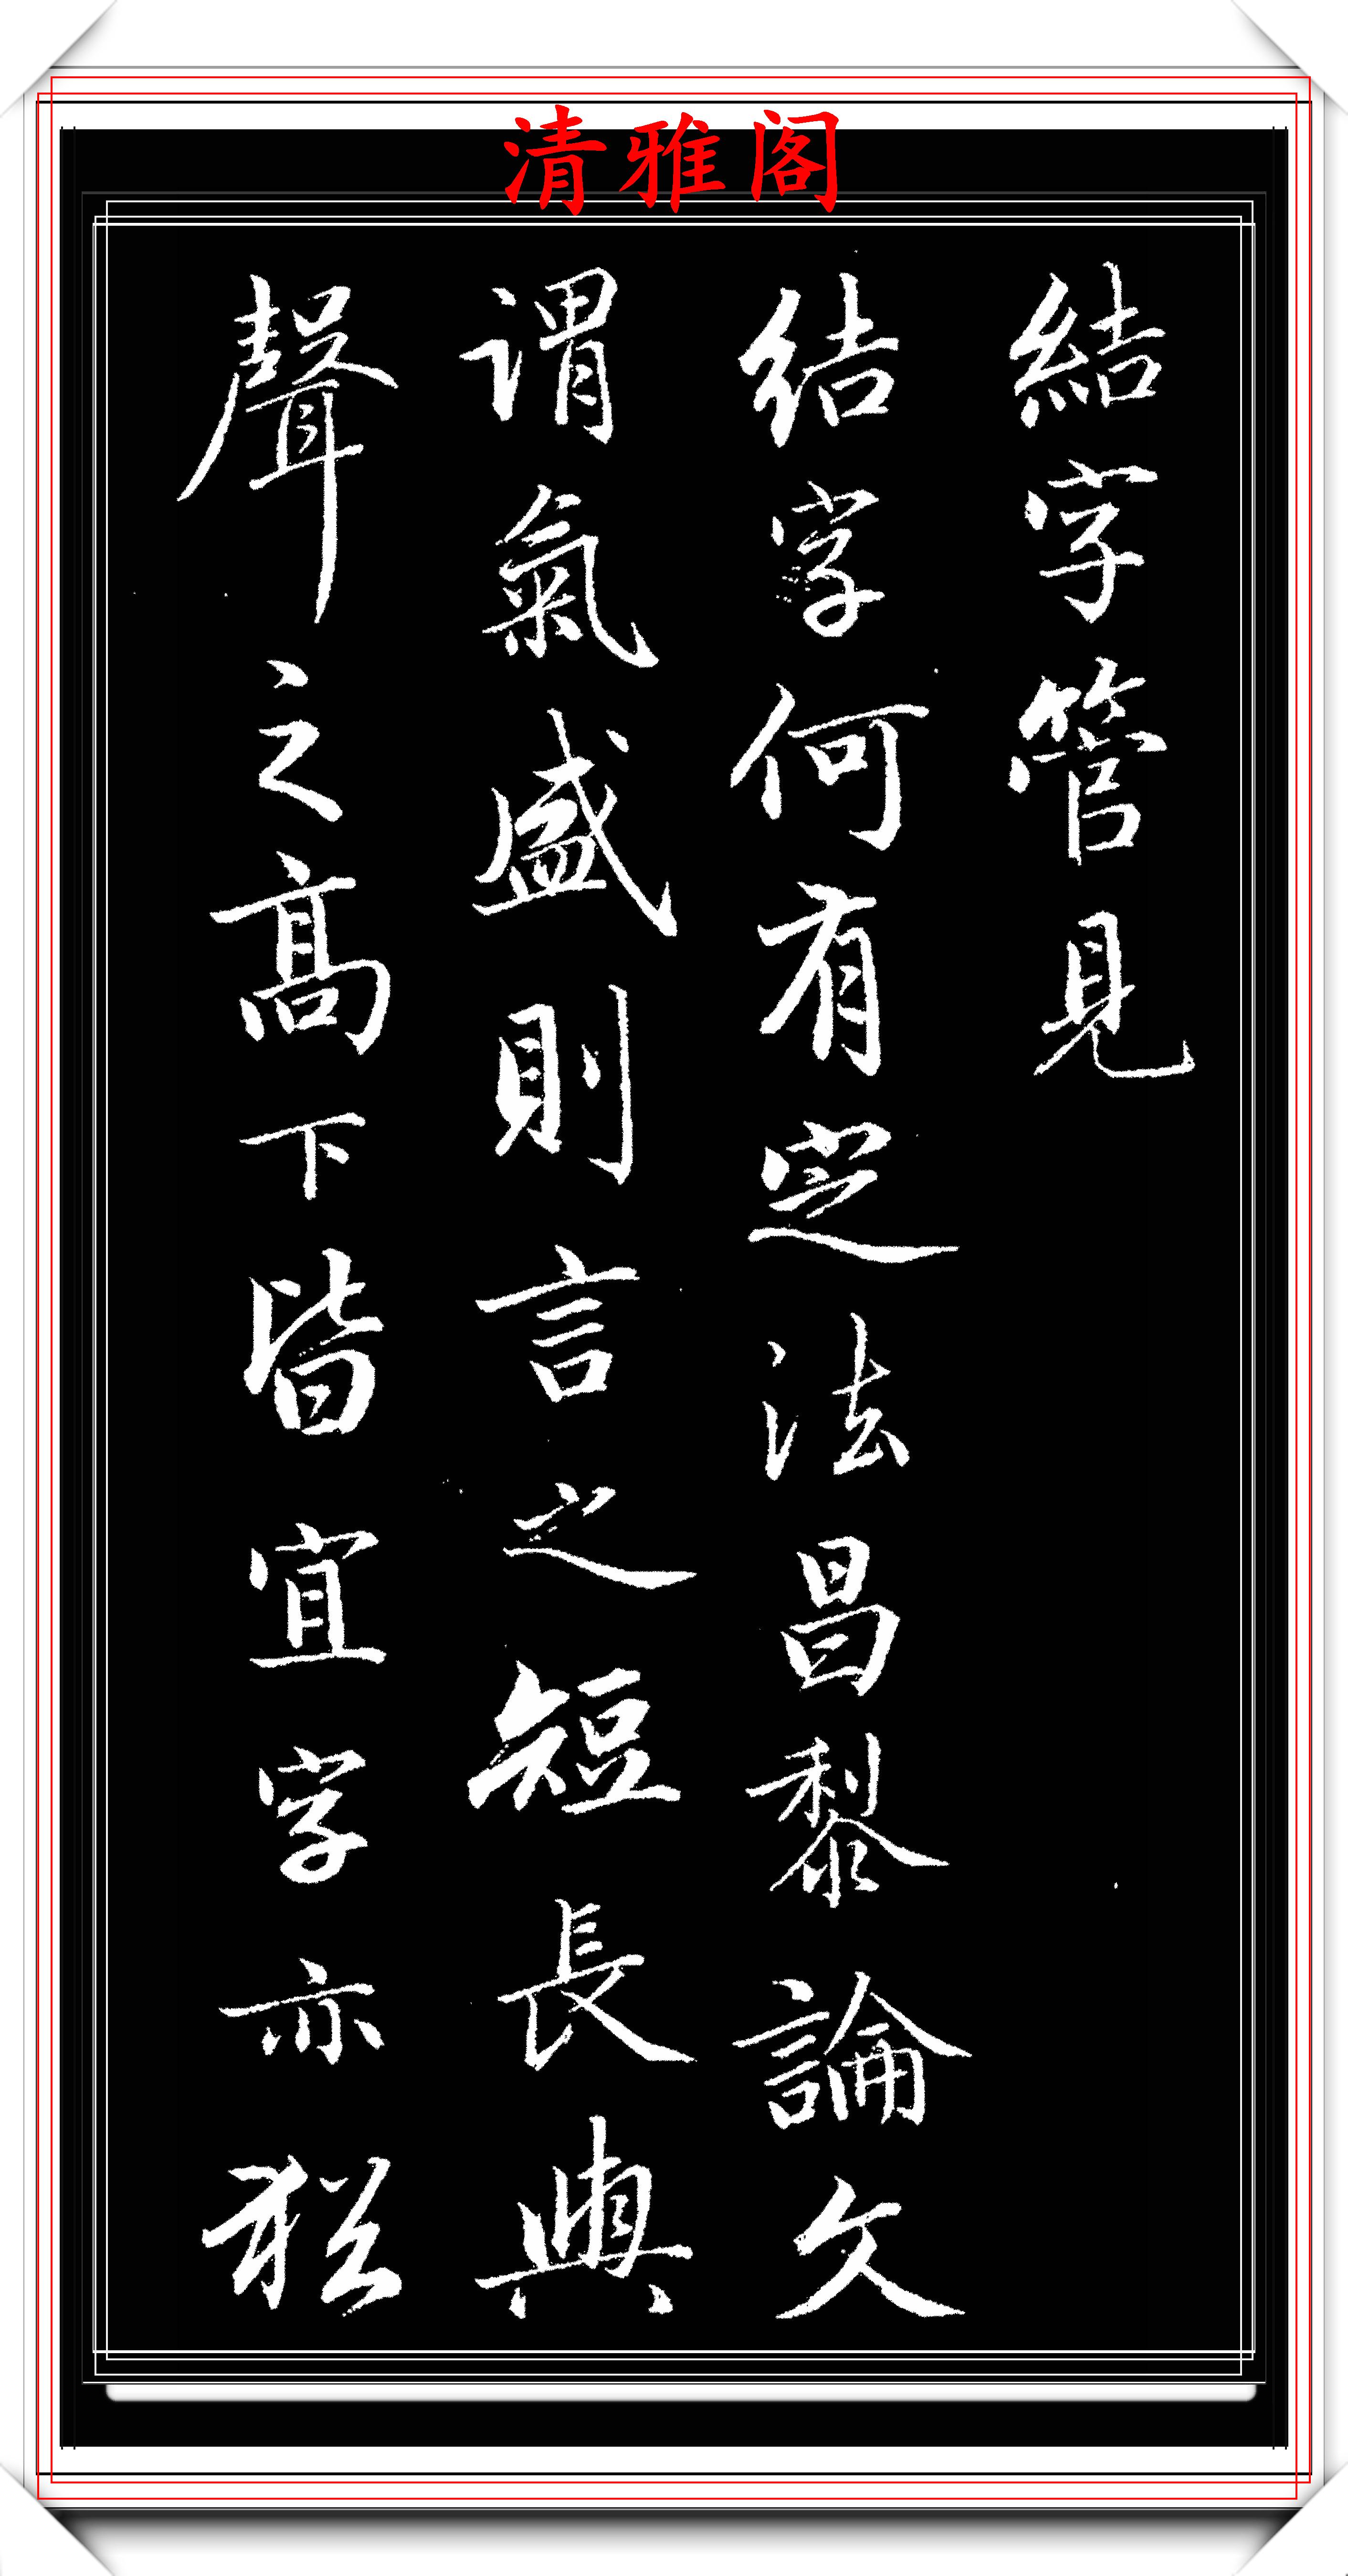 清雅阁
結字管見
结字何有定法昌黎論文
谓氣盛則言之短長與
聲之高下皆宜字亦猶